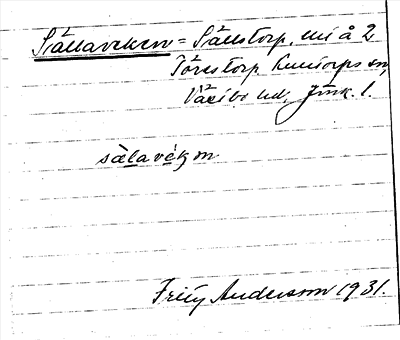 Sällaveken = Sällstorp, mi å 2
Törestorp Kulltorps sn,
Västbo hd, Jönk. l.
sälavékɱ
Fritz Anderson 1931.